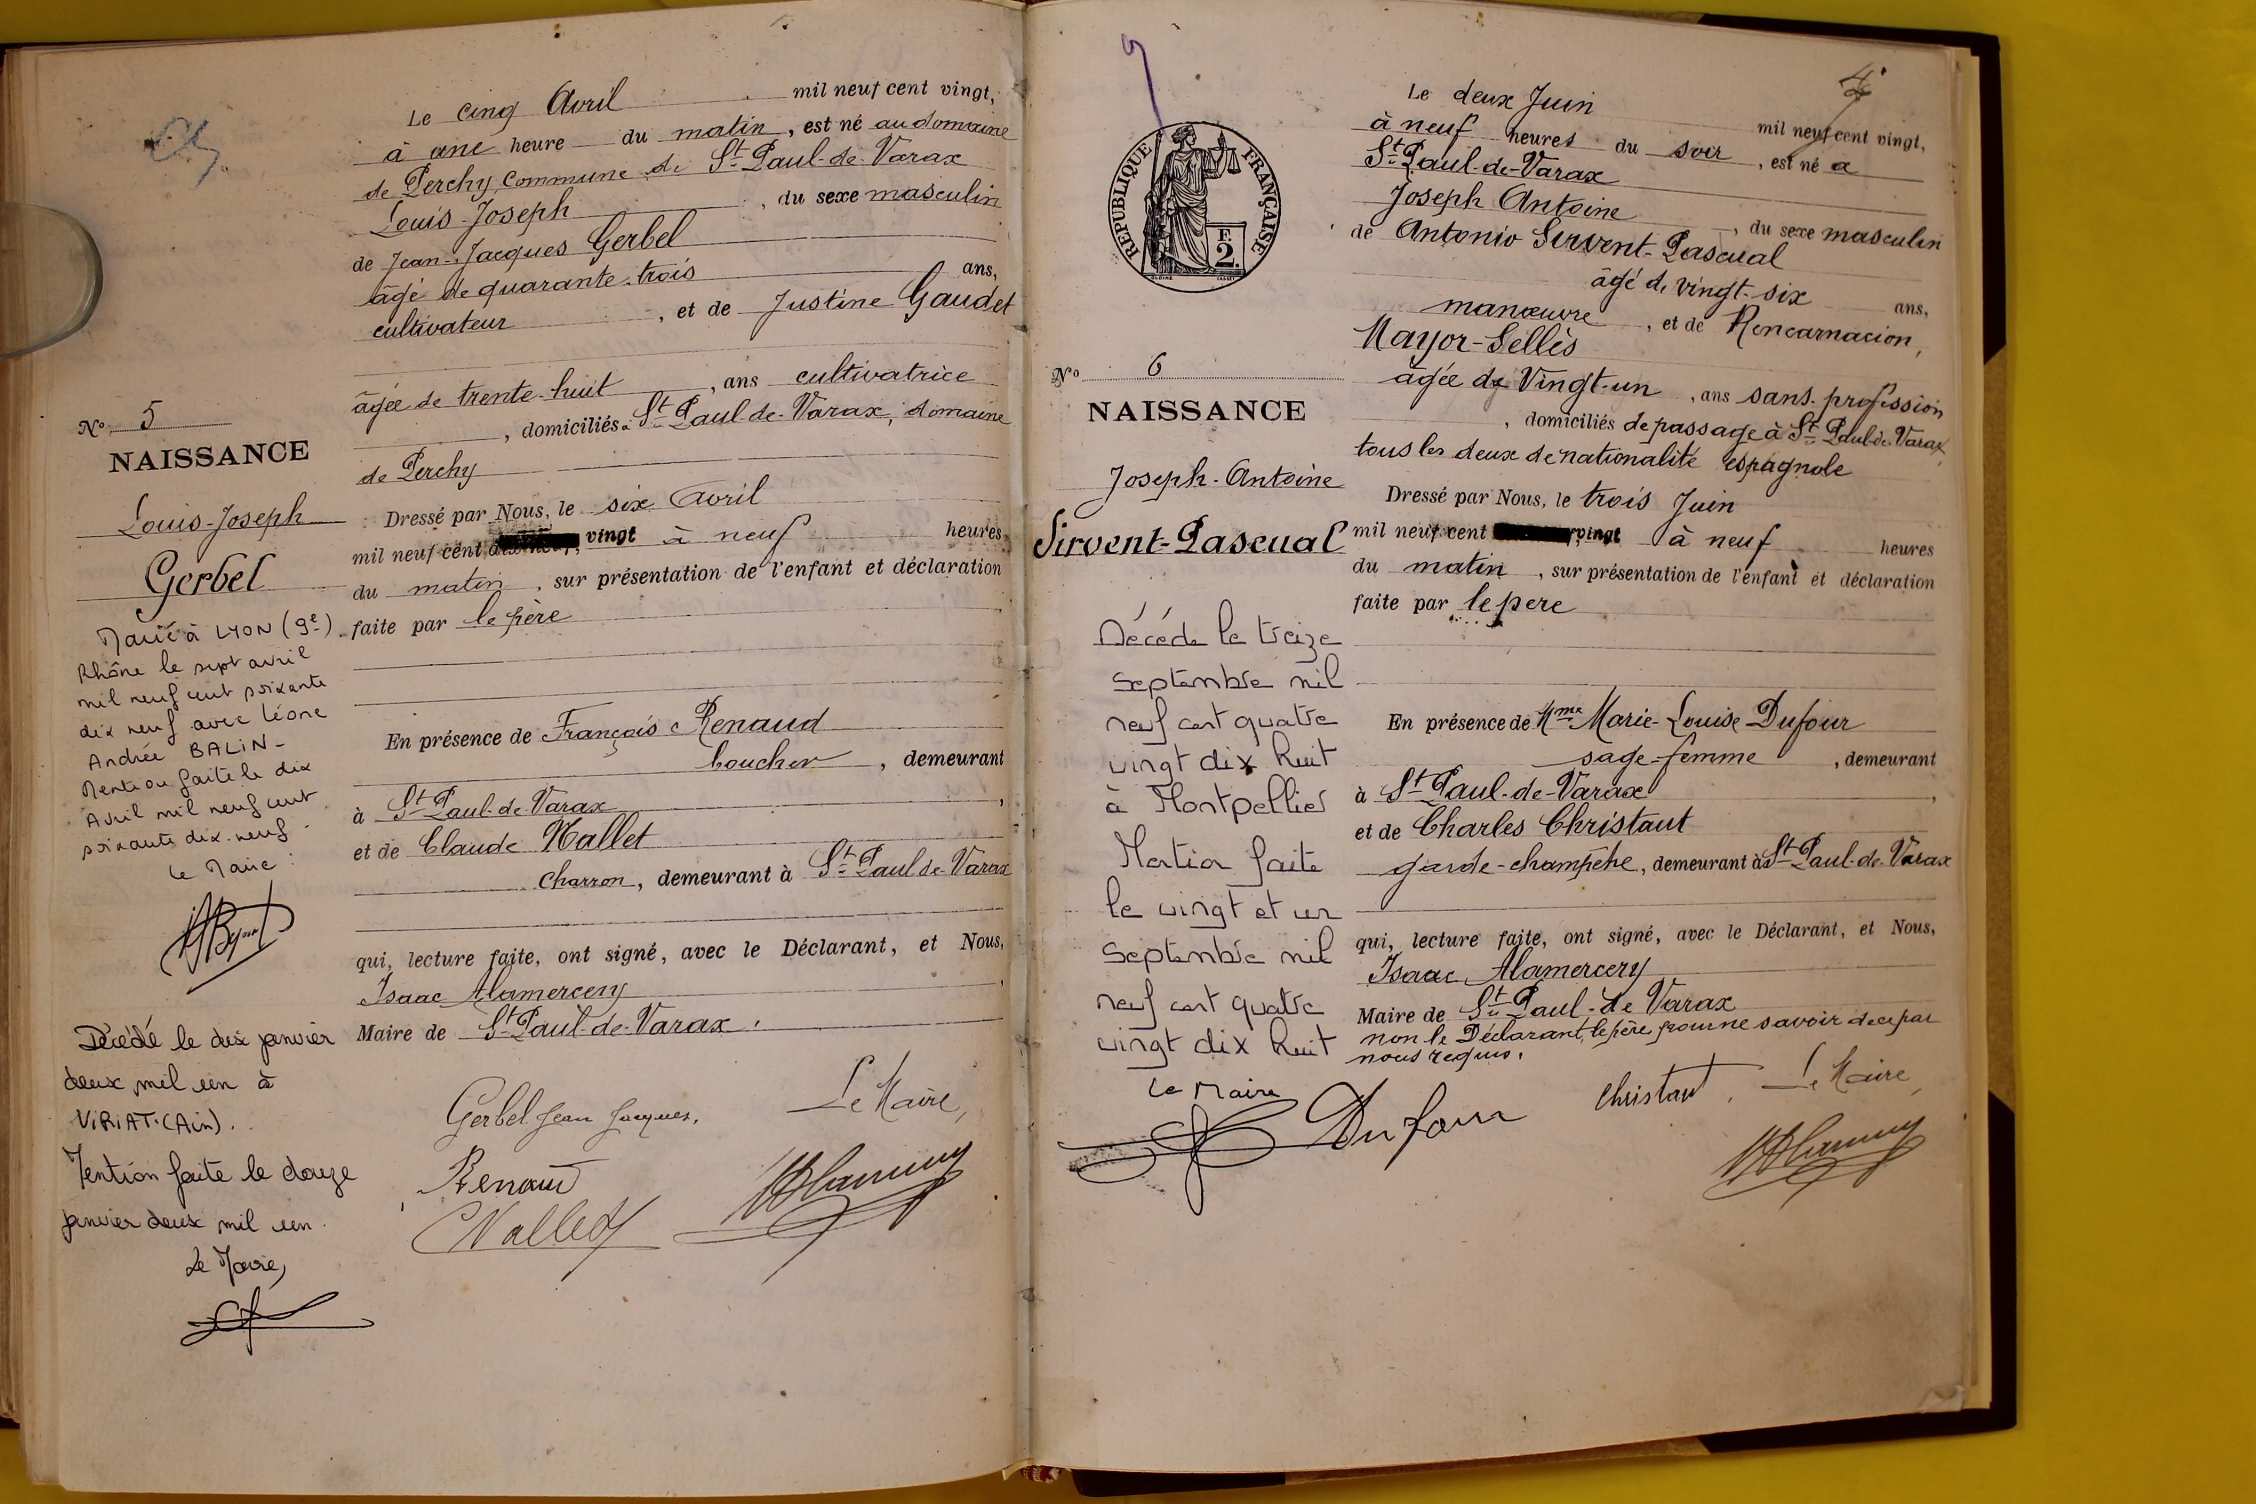 Le cinq Avril mil neuf cent vingt,
à une heure du matin, est né au domaine
de Perchy, commune de St Paul-de-Varax
Louis-Joseph, du sexe masculin
de Jean-Jacques Gerbel
âgé de quarante-trois ans,
cultivateur, et de Justine Gaudet
âgée de trente-huit, ans cultivatrice
, domiciliés à St Paul-de-Varax, domaine
de Perchy
Dressé par Nous, le six Avril
mil neuf cent vingt à neuf heures
du matin, sur présentation de l'enfant et déclaration
faite par le père
En présence de François Renaud
boucher, demeurant
à St Paul-de-Varax,
et de Claude Nallet
charron, demeurant à St Paul-de-Varax
qui, lecture faite, ont signé, avec le Déclarant, et Nous,
Isaac Alamercery
Maire de St Paul-de-Varax.
Gerbel Jean Jacques.
Le Maire,
Renaud
Nallet
No 5
NAISSANCE
Louis-Joseph
Gerbel
Marié à LYON (9e)
Rhône le sept avril
mil neuf cent soixante
dix neuf avec Léone
Andrée BALIN-
Mention faite le dix
Avril mil neuf cent
soixante dix-neuf.
Le Maire:
Décédé le dix janvier
deux mil un à
VIRIAT (Ain).
Mention faite le douze
janvier deux mil un.
Le Maire,
4
RÉPUBLIQUE FRANÇAISE
F.
2.
No 6
NAISSANCE
Joseph-Antoine
Sirvent-Pascual
Décédé le treize
septembre mil
neuf cent quatre
vingt dix huit
à Montpellier
Mention faite
le vingt et un
septembre mil
neuf cent quatre
vingt dix huit
Le Maire
Le deux Juin mil neuf cent vingt,
à neuf heures du soir, est né à
St Paul-de-Varax
Joseph Antoine, du sexe masculin
de Antonio Sirvent-Pascual
âgé de vingt-six ans,
manœuvre, et de Rencarnacion,
Mayor-Sellès
âgée de Vingt-un, ans sans profession
, domiciliés de passage à St Paul-de-Varax,
tous les deux de nationalité espagnole
Dressé par Nous, le trois Juin
mil neuf cent vingt à neuf heures
du matin, sur présentation de l'enfant et déclaration
faite par le père
En présence de Mme Marie-Louise Dufour
sage-femme, demeurant
à St Paul-de-Varax,
et de Charles Christaut
garde-champêtre, demeurant à St Paul-de-Varax
qui, lecture faite, ont signé, avec le Déclarant, et Nous,
Isaac Alamercery
Maire de St Paul-de Varax
non le Déclarant, le père pour ne savoir de ce par
nous requis.
Dufour
Christaut.
Le Maire,